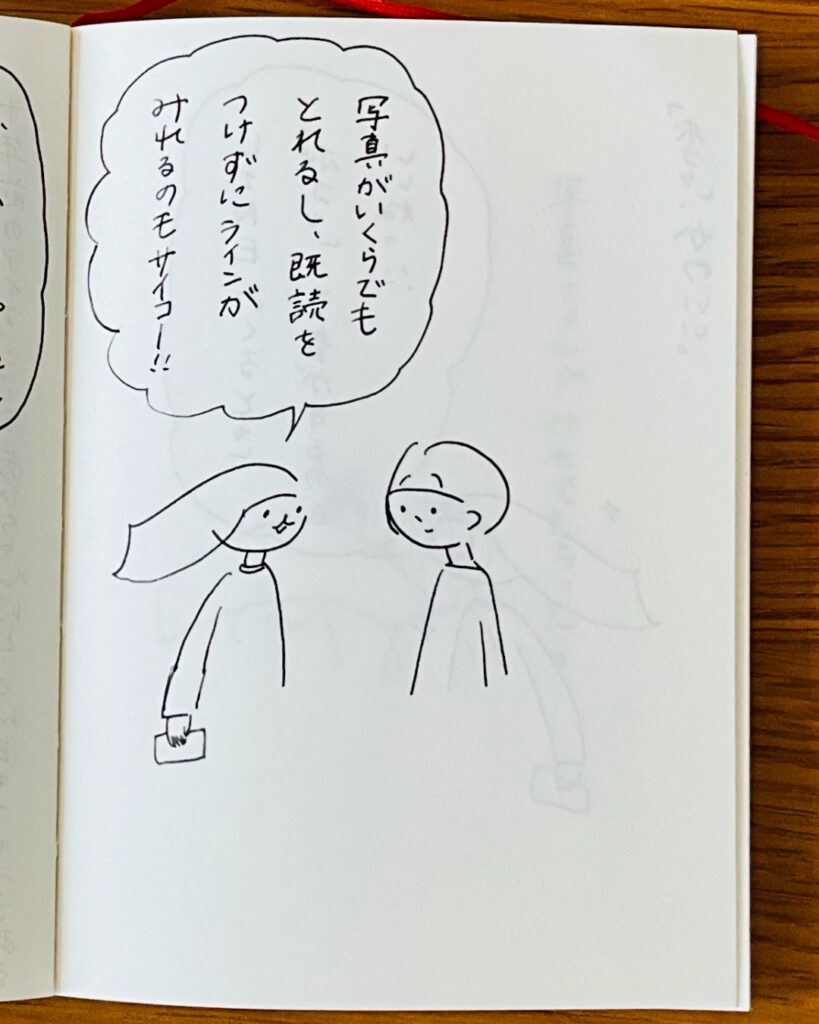 写真がいくらでも
とれるし、既読を
つけずにラインが
みれるのモサイコー!!